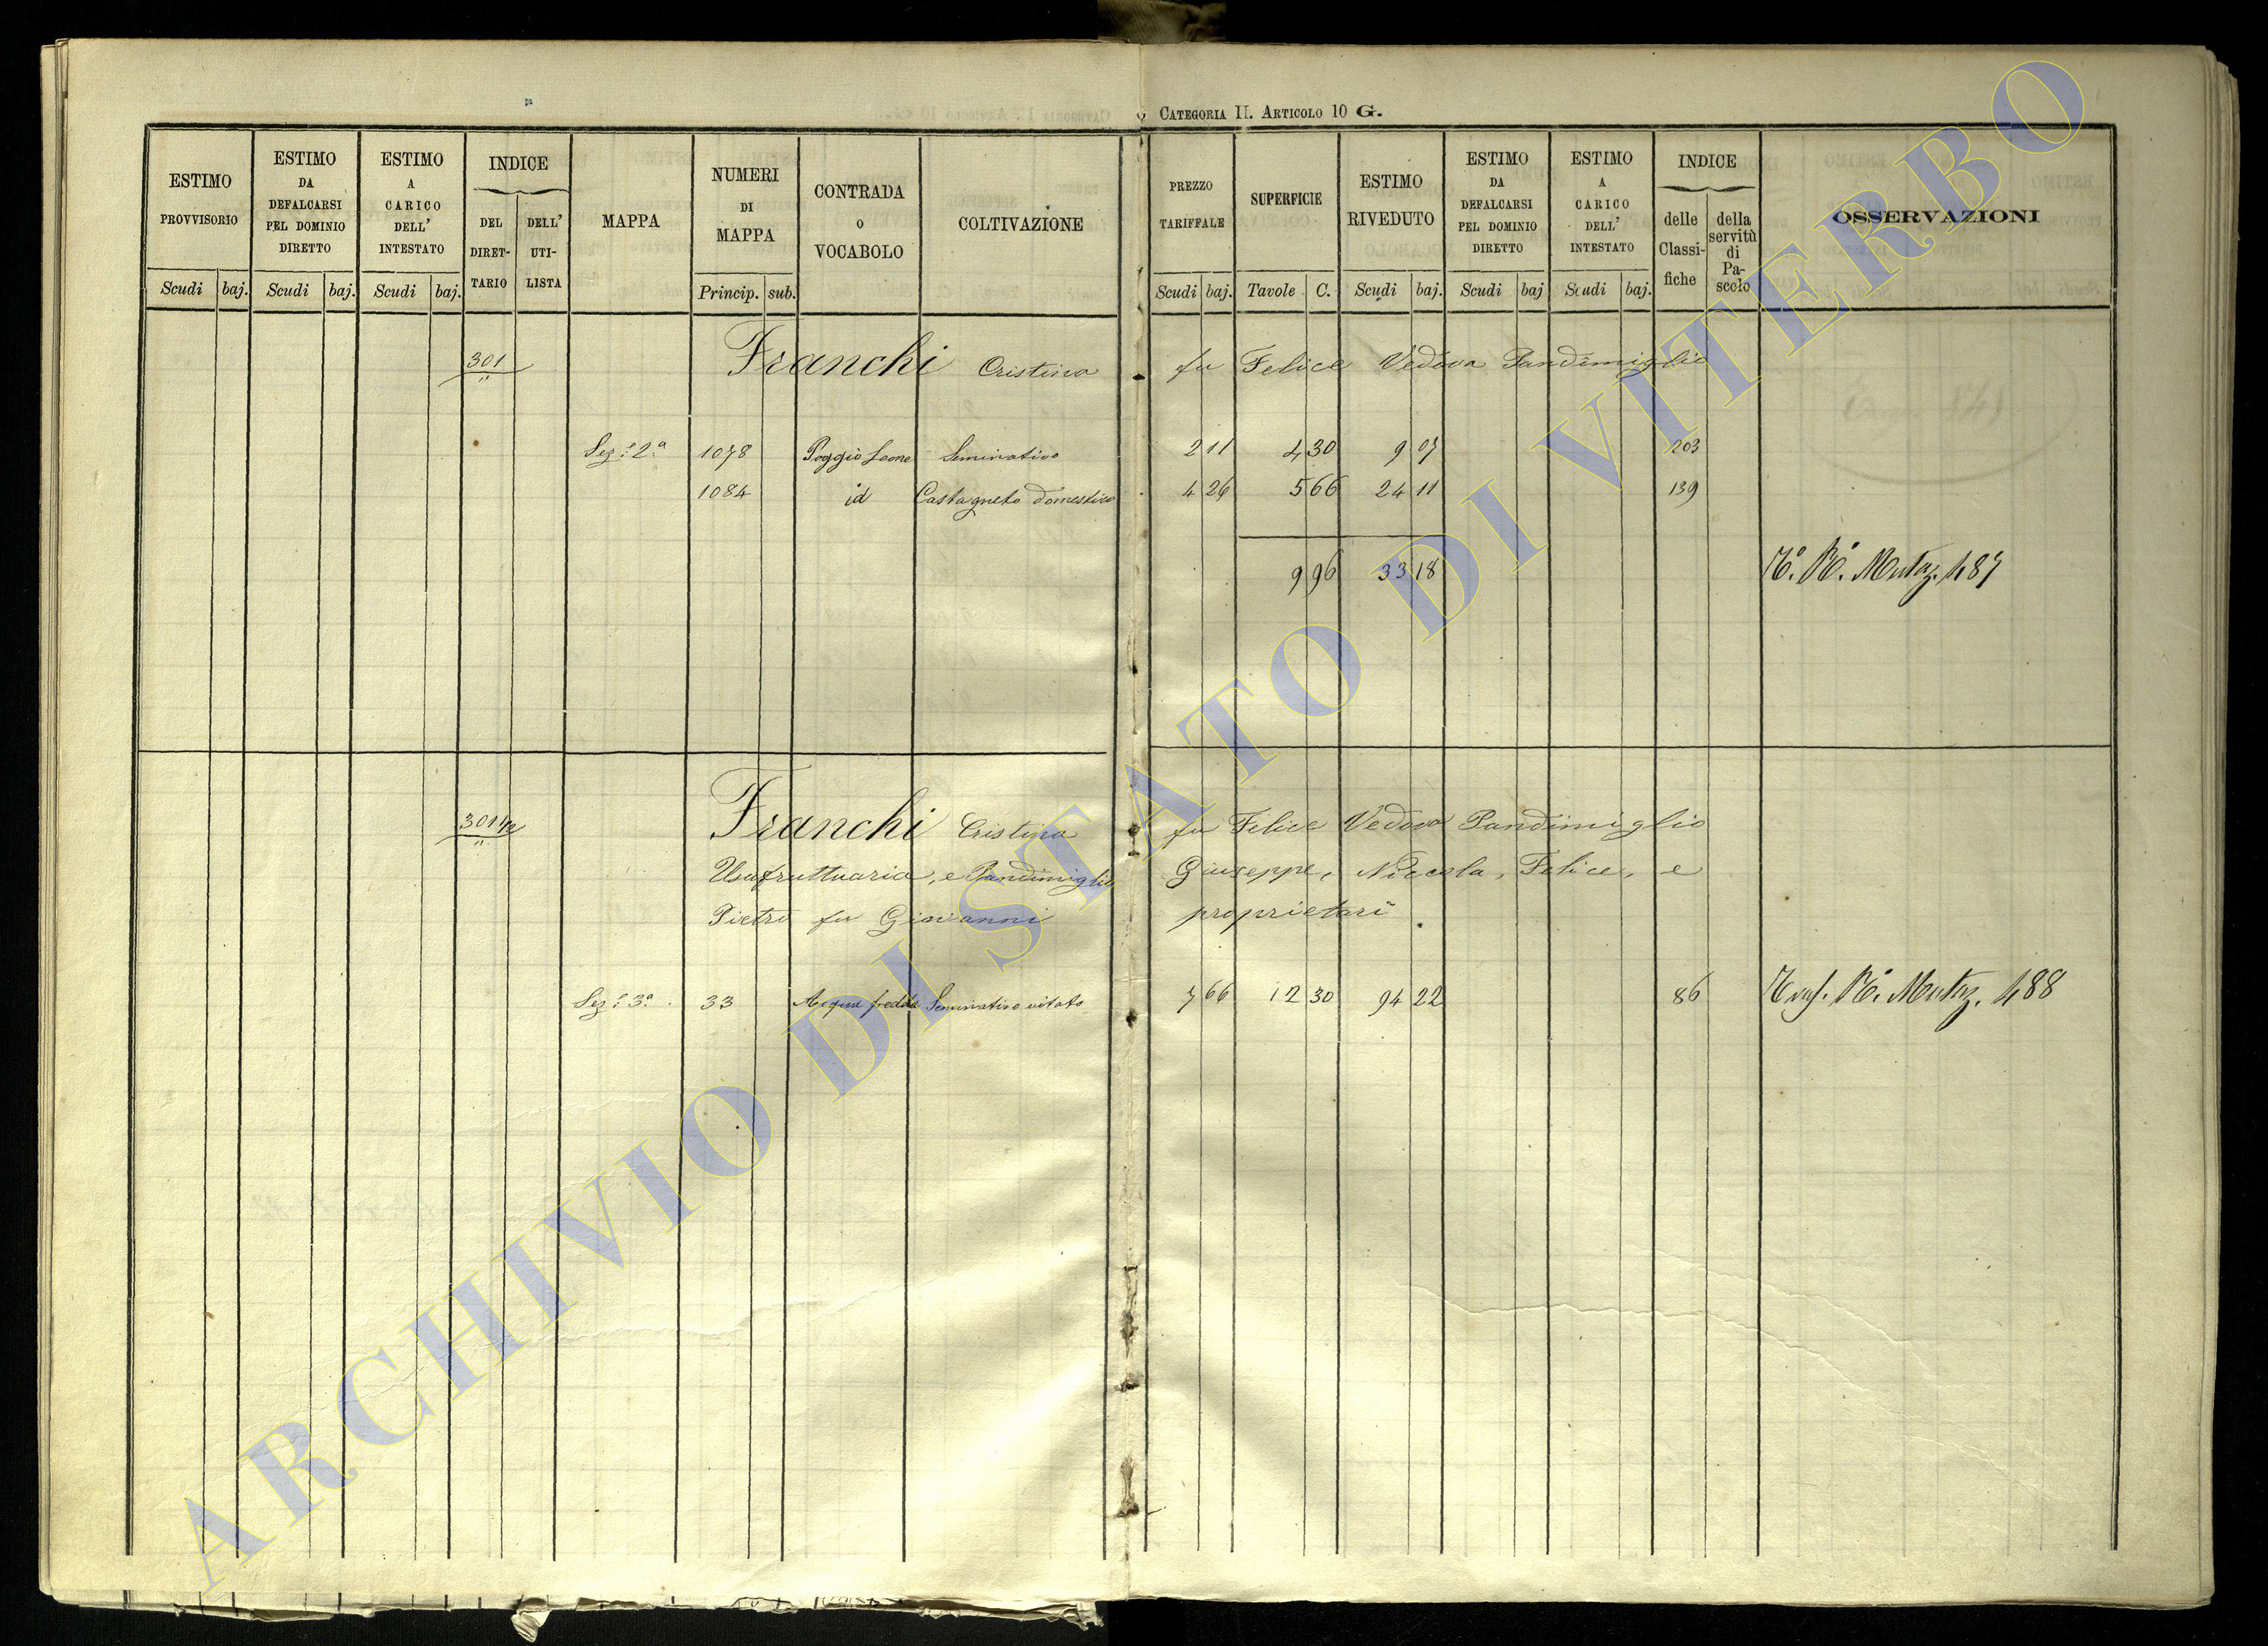 CATEGORIA II. ARTICOLO 10 G.
ESTIMO PROVVISORIO Scudi baj.
ESTIMO DA DEFALCARSI PEL DOMINIO DIRETTO Scudi baj.
ESTIMO A CARICO DELL' INTESTATO Scudi baj.
INDICE DEL DIRET-TARIO DELL' UTI-LISTA
MAPPA
NUMERI DI MAPPA Princip. sub.
CONTRADA o VOCABOLO
COLTIVAZIONE
PREZZO TARIFFALE Scudi baj.
SUPERFICIE Tavole C.
ESTIMO RIVEDUTO Scudi baj.
ESTIMO DA DEFALCARSI PEL DOMINIO DIRETTO Scudi baj
ESTIMO A CARICO DELL' INTESTATO Scudi baj.
INDICE delle Classi-fiche della servitù di Pa-scolo
OSSERVAZIONI
301 Franchi Cristina fu Felice Vedova Pandimiglio
Sez.e 2.a 1078 Poggio Leone Seminativo 2 11 4 30 9 07 203
1084 id Castagneto domestico 4 26 5 66 24 11 139
9 96 33 18 Mutaz. 487
301 1/2 Franchi Cristina fu Felice Vedova Pandimiglio
Usufruttuaria, e Pandimiglio Giuseppe, Niccola, Felice, e
Pietro fu Giovanni proprietari
Sez.e 3.a 33 Acqua fredda Seminativo vitato 7 66 12 30 94 22 86 Mutaz. 488
ARCHIVIO DI STATO DI VITERBO